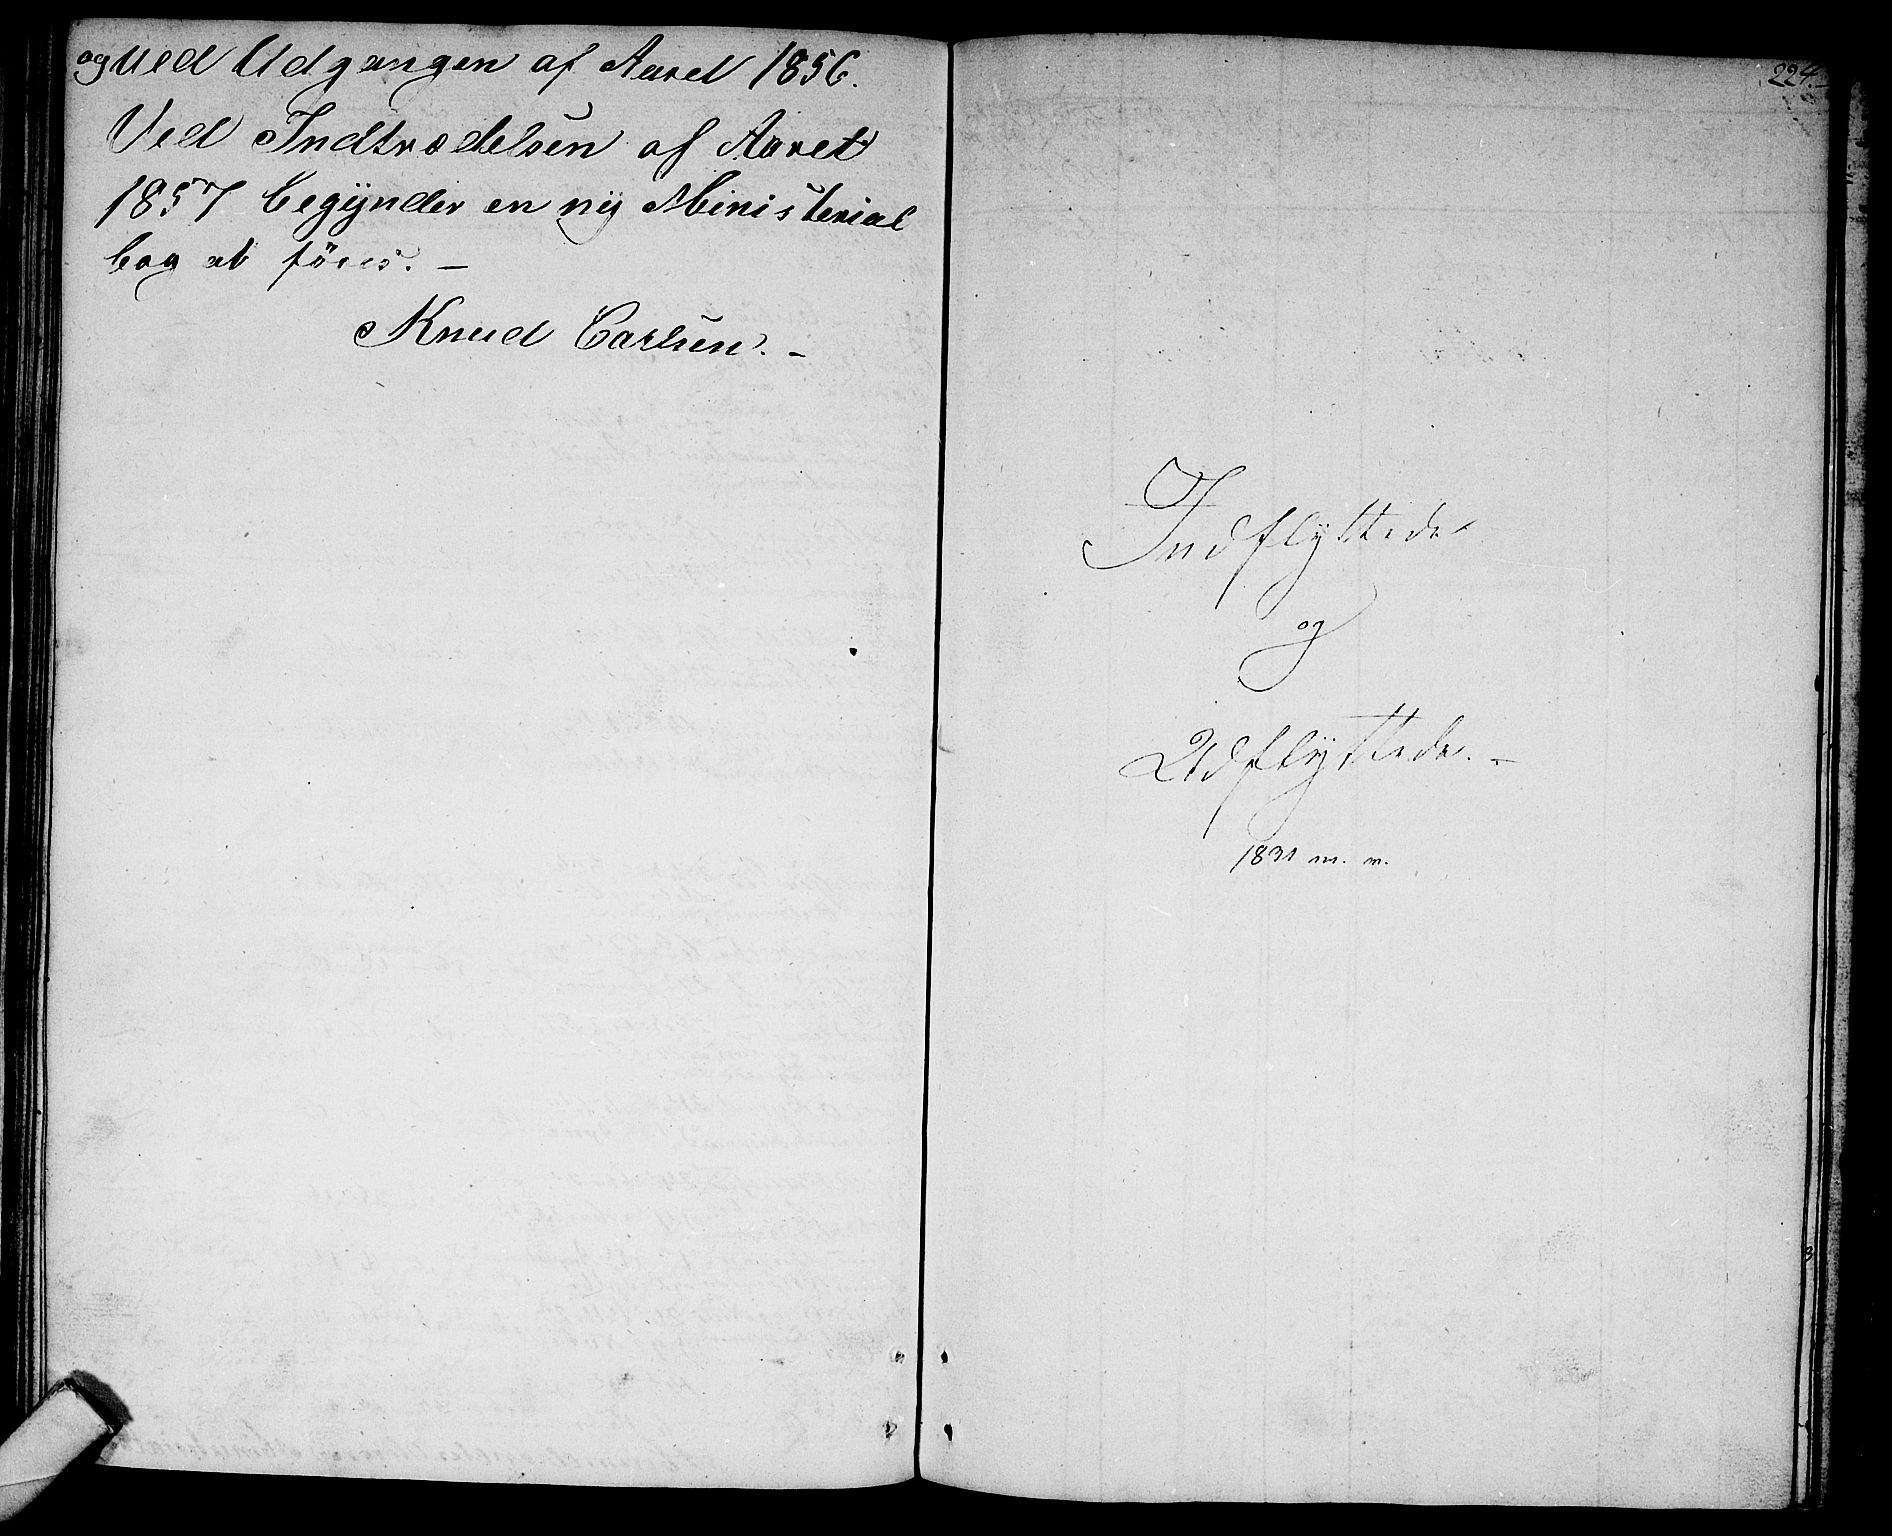 og ved Udgangen af Aaret 1856.
Ved Indtrædelsen af Aaret
1857 begÿnder en nÿ Ministerial
bog at föres. –
Knud Carlsen. –
224. –
Indflyttede
og
Udflÿttede. –
1831 m. v.